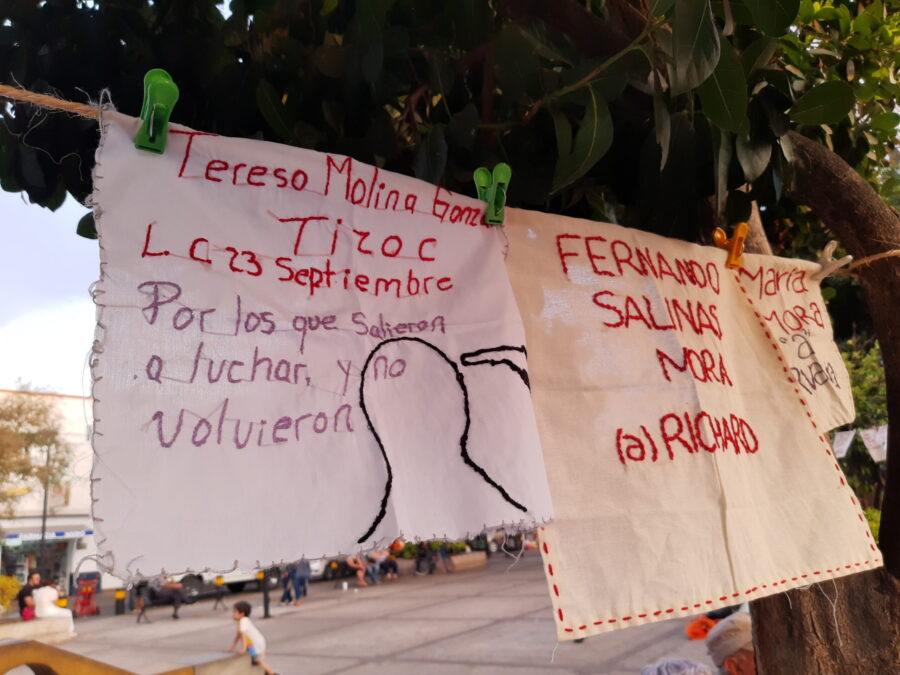 Tereso Molina Gonz
Tizoc
L. C 23 Septiembre
Por los que Salieron
a luchar, y no
volvieron
FERNANDO
SALINAS
MORA
(a) RICHARD
María
MORA
"a"